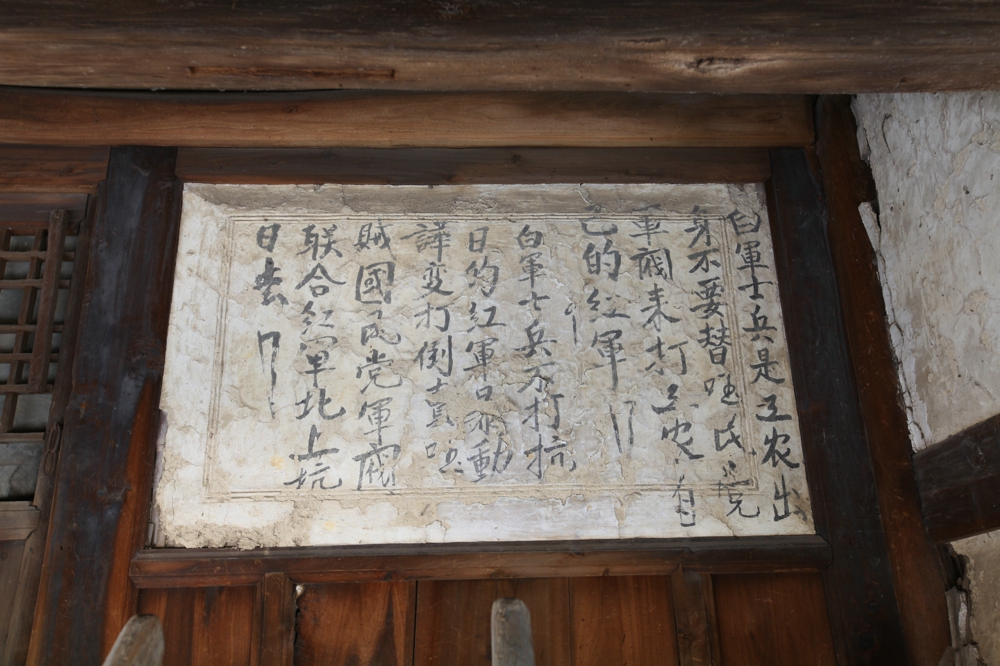 白軍士兵是工农出
身不要替国民党
軍閥来打工农自
己的红軍
白軍士兵不打抗
日的红軍日 動
譁变打倒卖国
賊國民党軍閥
联合红軍北上抗
日去